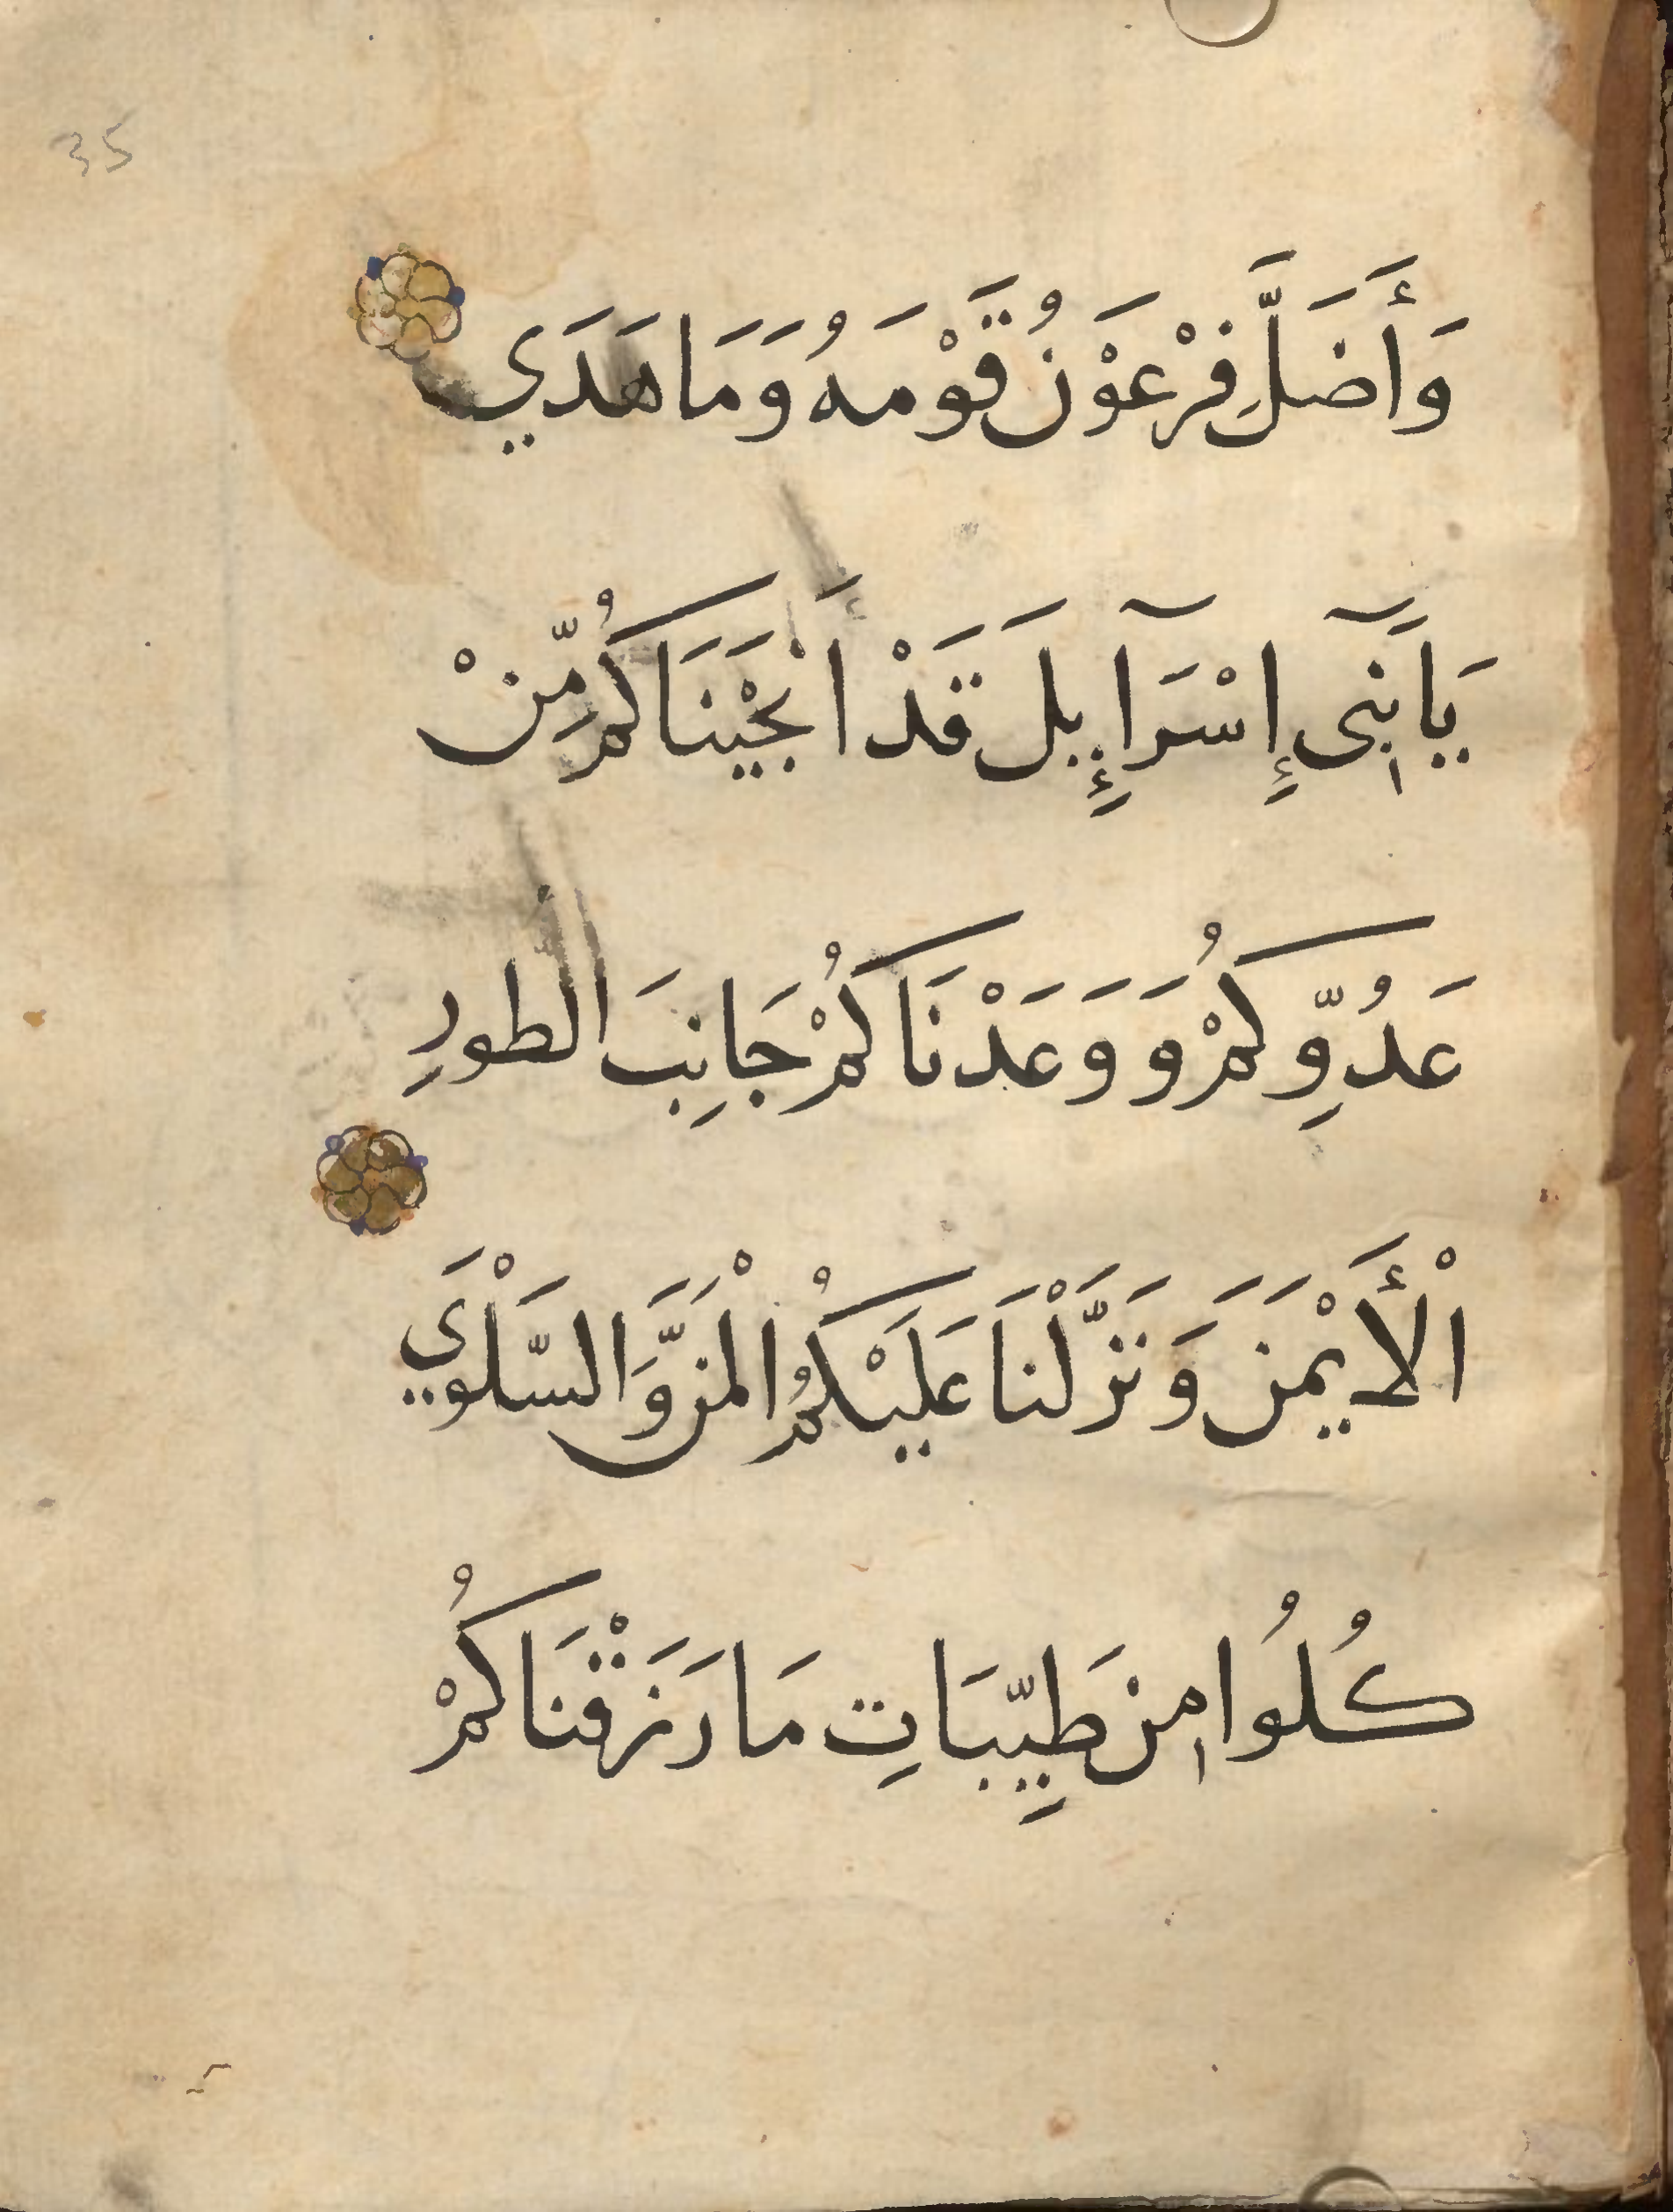 35
وَأَضَلَّ فِرْعَوْنُ قَوْمَهُ وَمَا هَدَي
يَابَنِىٓ إِسْرَآإِيلَ قَدْ أَنْجَيْنَاكُمْ مِّنْ
عَدُوِّكُمْ وَوَعَدْنَاكُمْ جَانِبَ الطورِ
اْلأَيْمَنَ وَنَزَّلْنَا عَلَيْكُمُ الْمَنَّ وَالسَّلْوَي
كُلُوا مِنْ طَيِّبَاتِ مَا رَزَقْنَاكُمْ